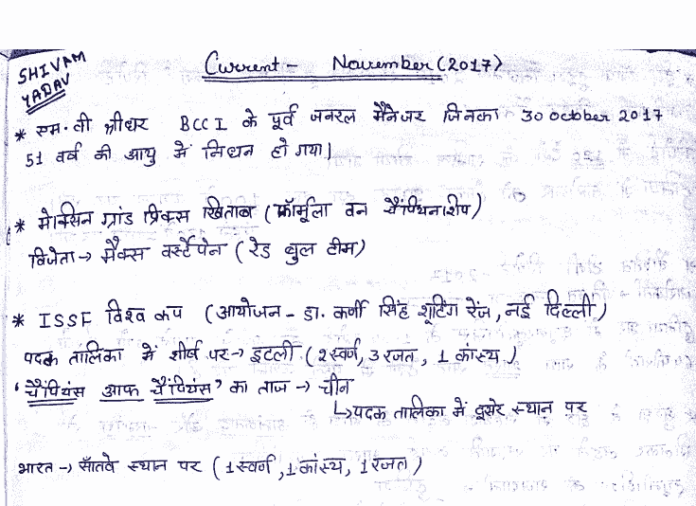 SHIVAM
YADAV
Current - November (2017)
* एम.वी श्रीधर BCCI के पूर्व जनरल मैनेजर जिनका 30 october 2017
51 वर्ष की आयु में निधन हो गया।
* मेक्सिन ग्रांड प्रिक्स खिताब (फॉर्मूला वन चैंपियनशिप)
विजेता → मैक्स वर्स्टेपेन (रेड बुल टीम)
* ISSF विश्व कप (आयोजन - डा. कर्णी सिंह शूटिंग रेंज, नई दिल्ली)
पदक तालिका में शीर्ष पर → इटली (2 स्वर्ण, 3 रजत, 1 कांस्य)
'चैंपियंस आफ चैंपियंस' का ताज → चीन
↳ पदक तालिका में दूसरे स्थान पर
भारत → साँतवे स्थान पर (1 स्वर्ण, 1 कांस्य, 1 रजत)